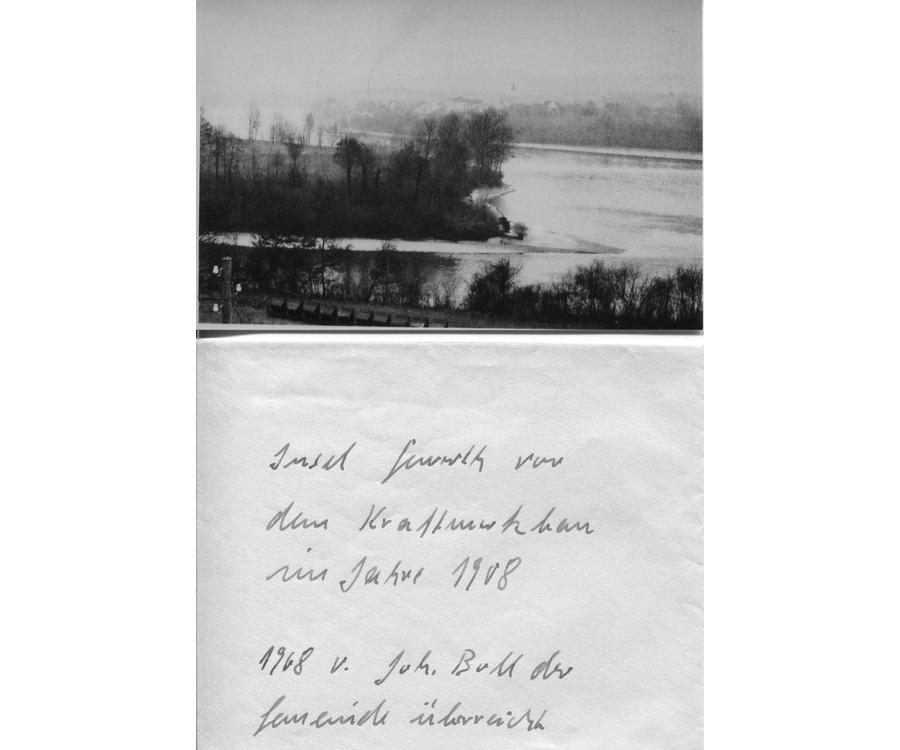 Insel vor
dem Kraftwerkbau
im Jahre 1908
1968 v. Joh. Boll der
Gemeinde überreicht